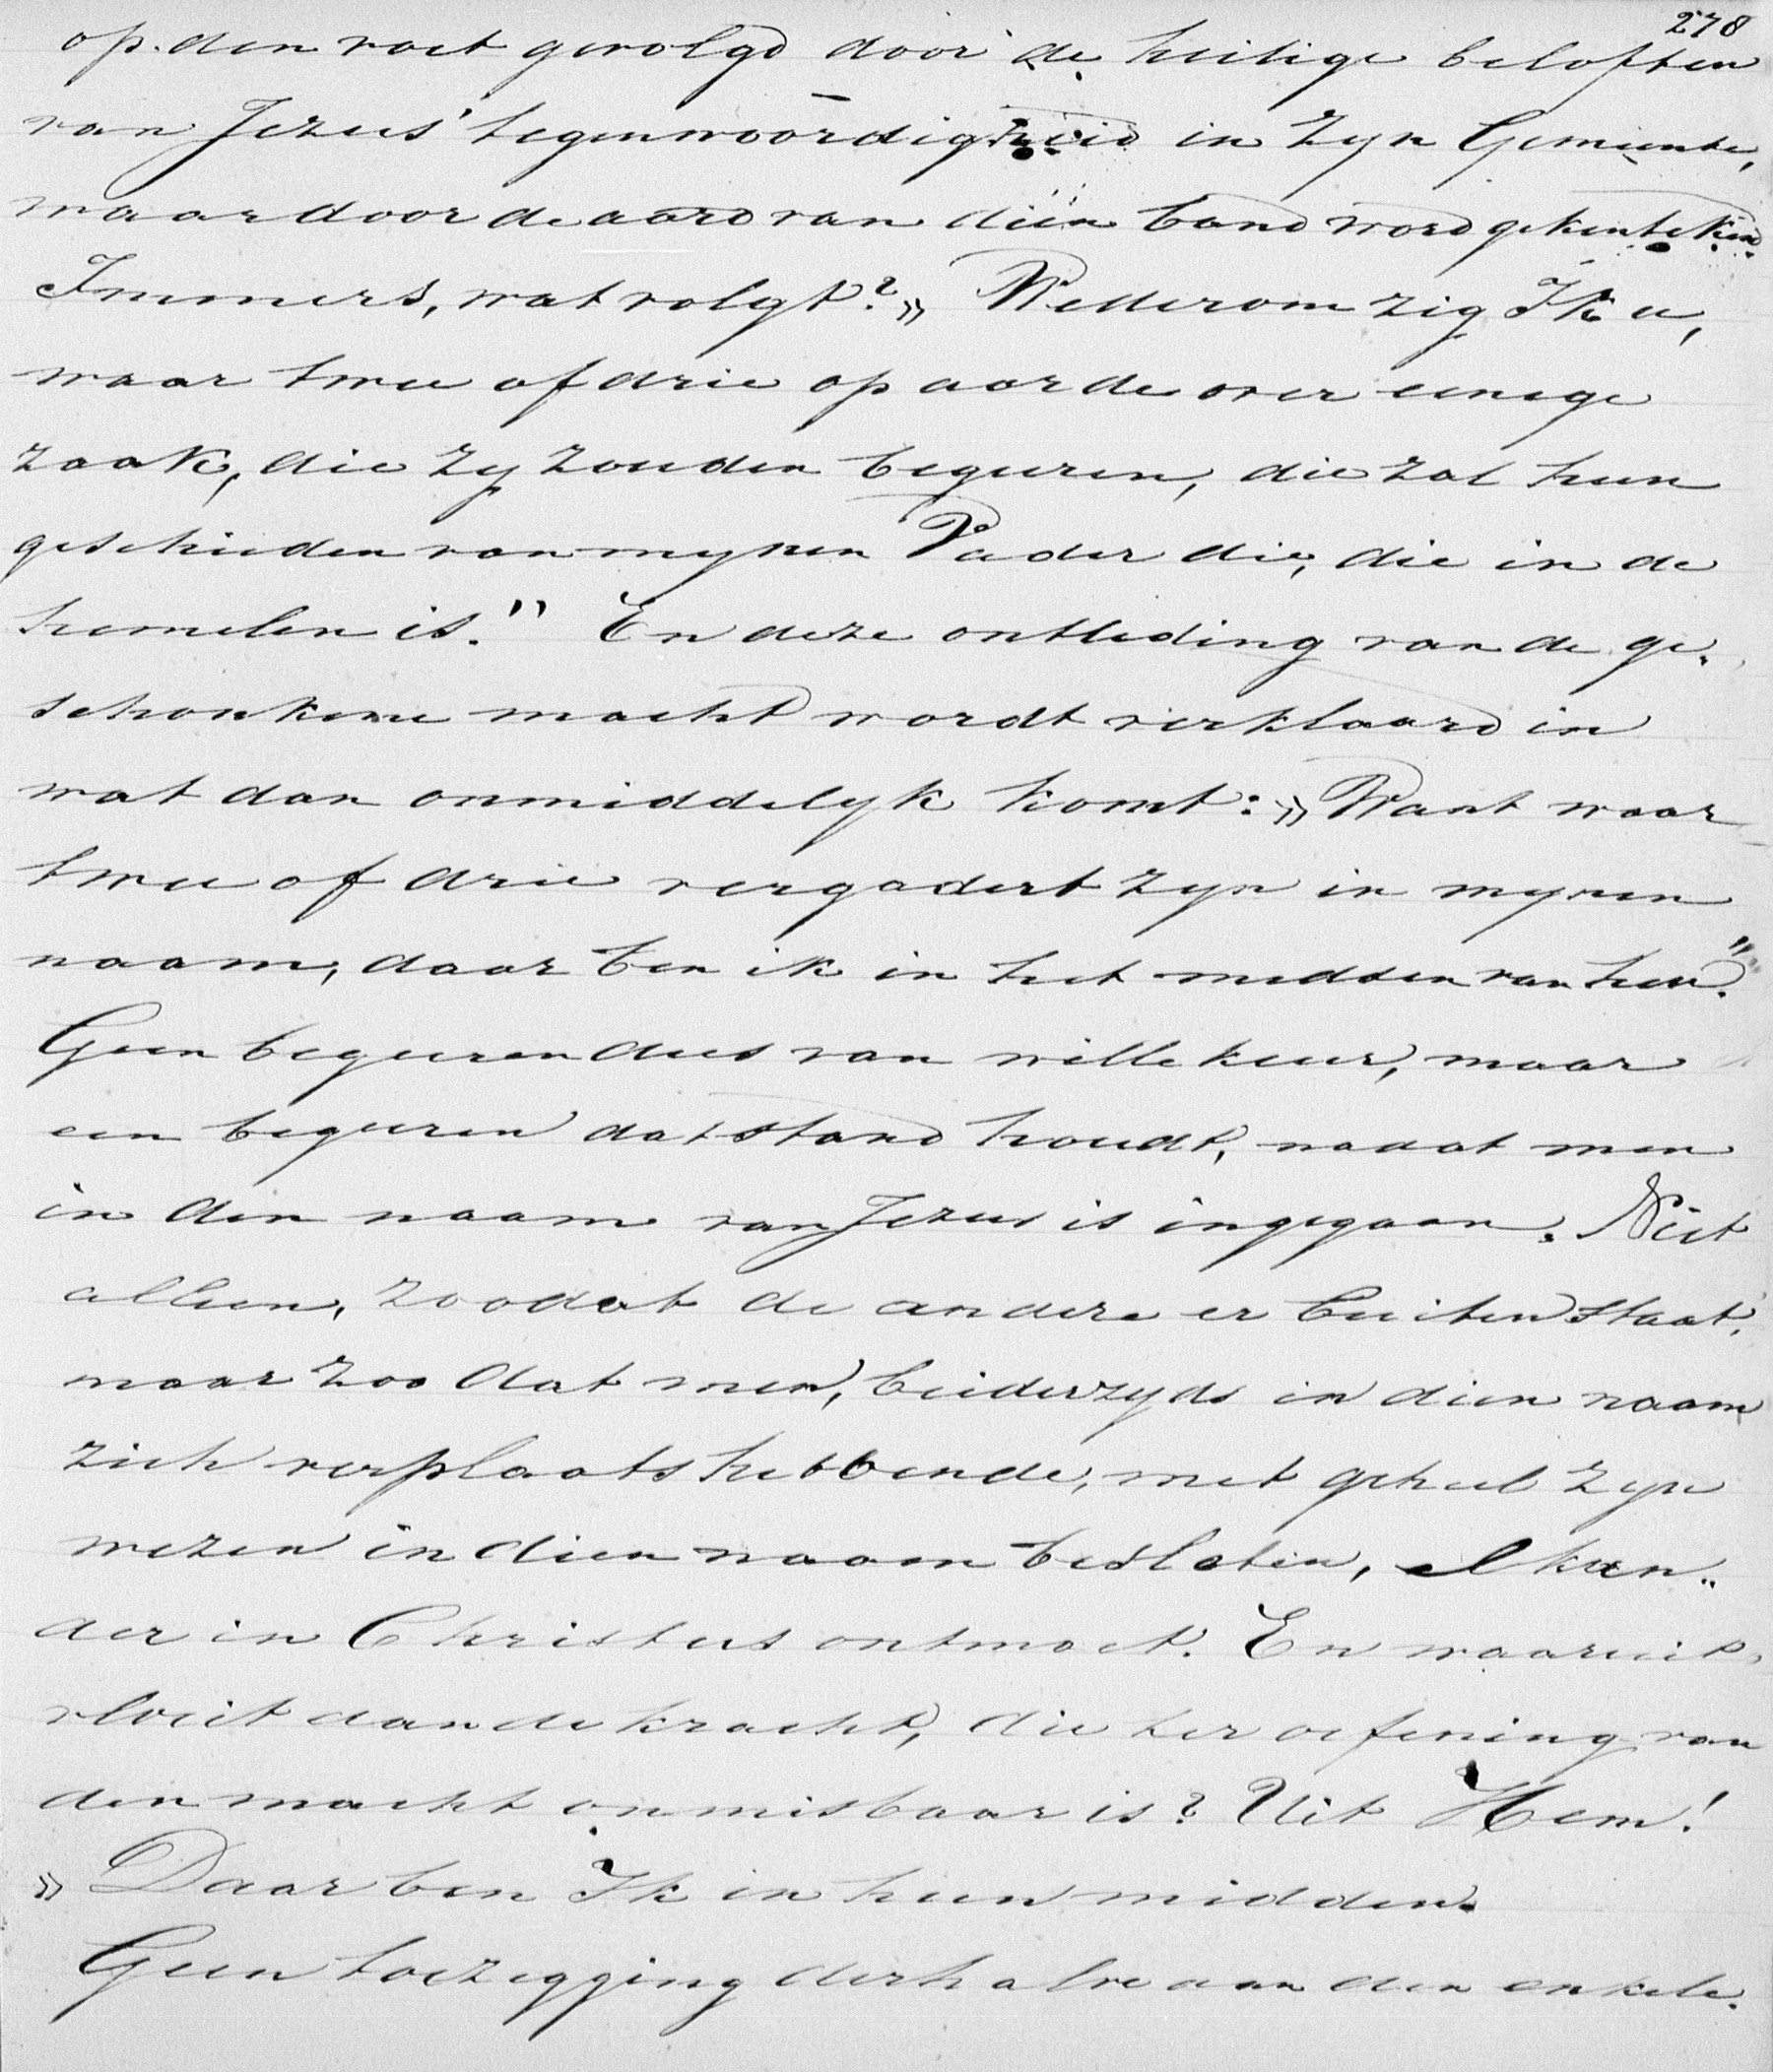 278
op den voet gevolgd door de heilige beloften
van Jezus' tegenwoordigheid in zyn Gemeente,
waardoor de aard van diën band word gekenteekend.
Immers, wat volgt? „ Wederom zig Ik u,
waar twee of drie op aarde over eenige
zaak, die zy zouden begeeren, die zal hun
geschieden van mynen Vader die, die in de
hemelen is." En deze ontleding van de ge-
schonkene macht wordt verklaard in
wat dan onmiddelyk komt: „ Want waar
twee of drie vergadert zyn in mynen
naam, daar ben ik in het midden van hen."
Geen begeeren dus van willekeur, maar
een begeeren dat stand houdt, nadat men
in den naam van Jezus is ingegaan. Niet
alleen, zoodat de andere er buiten staat,
maar zoo dat men, beiderzyds in dien naam
zich verplaats hebbende, met geheel zyn
wezen in dien naam besloten, elkan-
der in Christus ontmoet. En waaruit
vloeit dan de kracht, die ter oefening van
den macht onmisbaar is? Uit Hem!
„ Daar ben Ik in hun midden.
Geen toezegging derhalve aan den enkele.